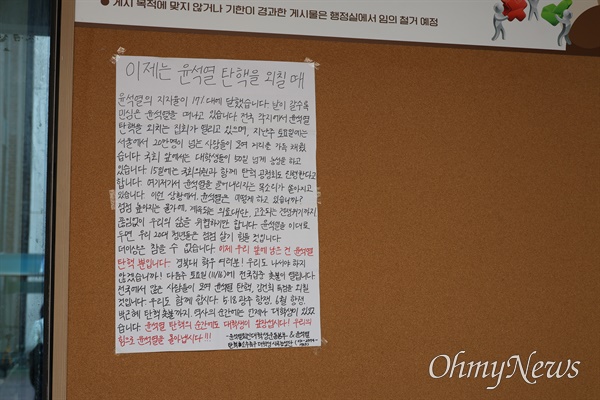 ● 게시 목적에 맞지 않거나 기한이 경과한 게시물은 행정실에서 임의 철거 예정
이제는 윤석열 탄핵을 외칠 때
윤석열의 지지율이 17%대에 달했습니다. 날이 갈수록
민심은 윤석열을 떠나고 있습니다. 전국 각지에서 윤석열
탄핵을 외치는 집회가 열리고 있으며, 지난주 토요일에는
서울에서 20만명이 넘는 사람들이 모여 거리를 가득 채웠
습니다. 국회 앞에서는 대학생들이 50일 넘게 농성을 하고
있습니다. 15일에는 국회의원과 함께 탄핵 공청회도 진행한다고
합니다. 여기저기서 윤석열을 끌어내리라는 목소리가 높아지고
있습니다. 이런 상황에서, 윤석열은 어떻게 하고 있습니까?
점점 높아지는 물가에, 계속되는 의료대란, 고조되는 전쟁위기까지.
끊임없이 우리의 삶을 위협하기만 합니다. 윤석열을 이대로
두면, 우리 20대 청년들은 점점 살기 힘들 것입니다.
더이상은 참을 수 없습니다. 이제 우리 앞에 남은 건 윤석열
탄핵 뿐입니다- 경북대 학우 여러분! 우리도 나서야 하지
않겠습니까! 다음주 토요일(11/16)에 전국집중 촛불이 열립니다.
전국에서 많은 사람들이 모여 윤석열 탄핵, 김건희 특검을 외칠
것입니다. 우리도 함께 합시다. 5.18 광주 항쟁, 6월 항쟁,
박근혜 탄핵 촛불까지. 역사의 순간에는 언제나 대학생이 있었
습니다. 윤석열 탄핵의 순간에도 대학생이 앞장섭시다! 우리의
힘으로 윤석열을 몰아냅시다!!!
-윤석열퇴진대학생운동본부 & 윤석열
탄핵
OhmyNews